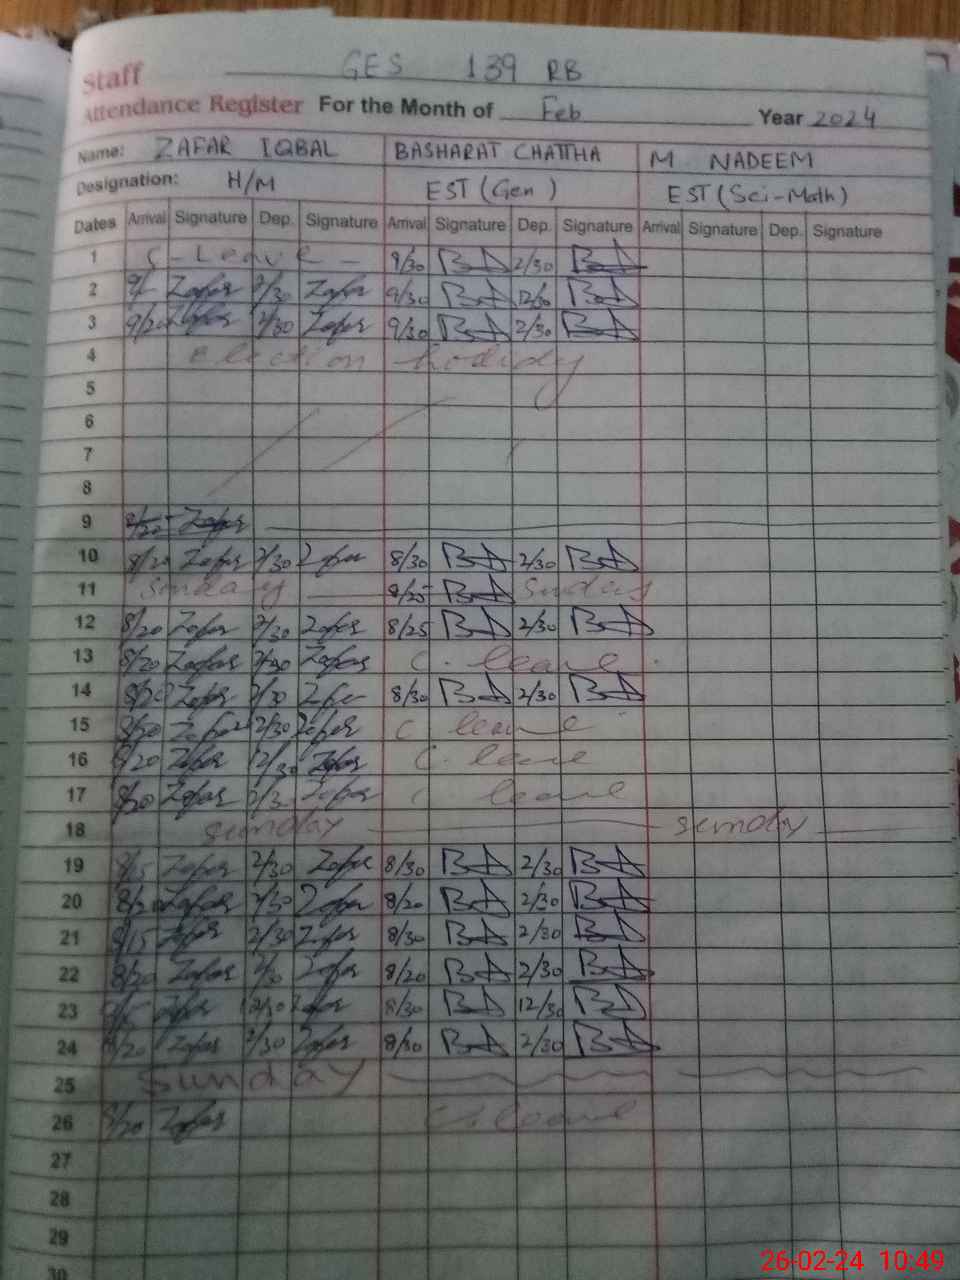 GES 139 RB
Staff
Attendance Register For the Month of Feb Year 2024
Name: ZAFAR IQBAL BASHARAT CHATTHA M NADEEM
Designation: H/M EST (Gen) EST (Sci-Math)
Dates Arrival Signature Dep. Signature Arrival Signature Dep. Signature Arrival Signature Dep. Signature
1 Leave 9/30 BA 2/30 BA
2 9/ Zafar 2/30 Zafar 9/30 BA 12/30 BA
3 9/20 Zafar 2/30 Zafar 9/30 BA 2/30 BA
4 Election holiday
5
6
7
8
9 8/20 Zafar
10 8/20 Zafar 2/30 Zafar 8/30 BA 2/30 BA
11 Sunday 8/25 BA Sunday
12 8/20 Zafar 2/30 Zafar 8/25 BA 2/30 BA
13 8/20 Zafar 2/30 Zafar C. leave
14 8/20 Zafar 2/30 Zafar 8/30 BA 2/30 BA
15 8/20 Zafar 2/30 Zafar C leave
16 8/20 Zafar 12/30 Zafar C. leave
17 8/20 Zafar 2/30 Zafar C leave
18 sunday sunday
19 8/15 Zafar 2/30 Zafar 8/30 BA 2/30 BA
20 8/20 Zafar 2/30 Zafar 8/20 BA 2/30 BA
21 8/15 Zafar 2/30 Zafar 8/30 BA 2/30 BA
22 8/20 Zafar 2/30 Zafar 8/20 BA 2/30 BA
23 8/15 Zafar 12/30 Zafar 8/30 BA 12/30 BA
24 8/20 Zafar 2/30 Zafar 8/30 BA 2/30 BA
25 Sunday
26 8/20 Zafar C. leave
27
28
29
30
26-02-24 10:49